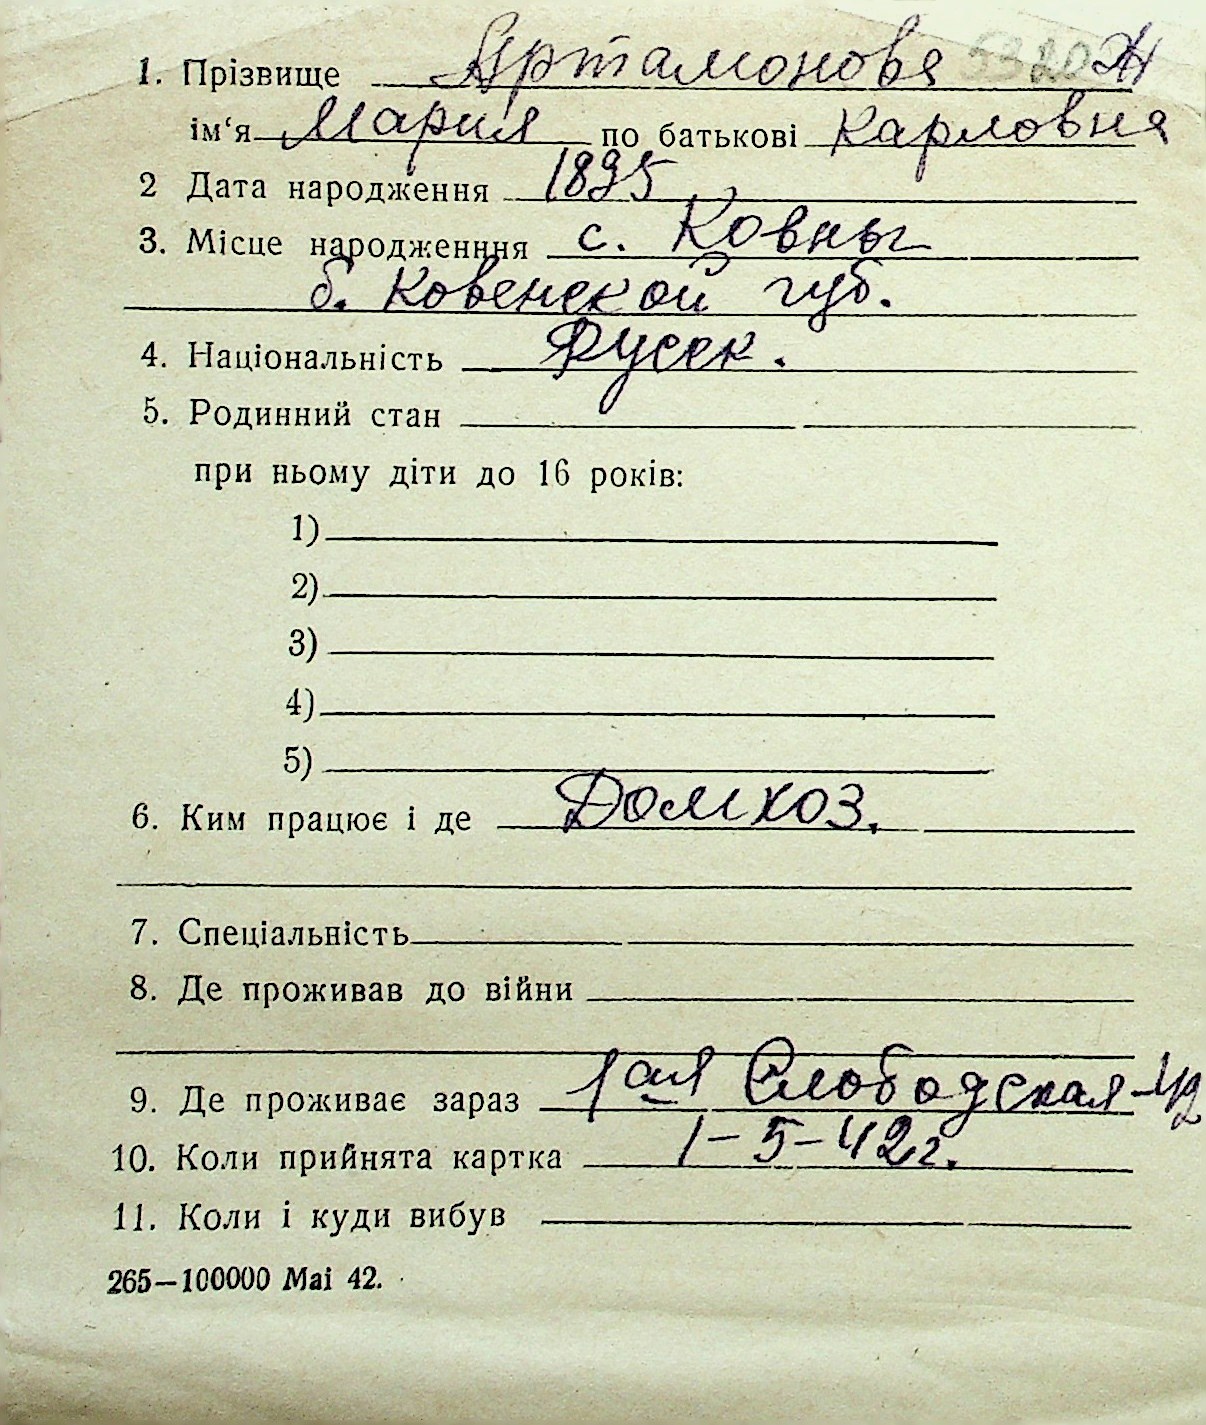 1. Прізвище Артамонова 5320 Ж
ім‘я Мария по батькові Карловна
2 Дата народження 1895
3. Місце народженння с. Ковны
б. Ковенской губ.
4. Національність Русск.
5. Родинний стан
при ньому діти до 16 років:
1)
2)
3)
4)
5)
6. Ким працює і де Домхоз.
7. Спеціальність
8. Де проживав до війни
9. Де проживає зараз 1ая Слободская-42
10. Коли прийнята картка 1-5-42г.
11. Коли і куди вибув
265—100000 Маі 42.